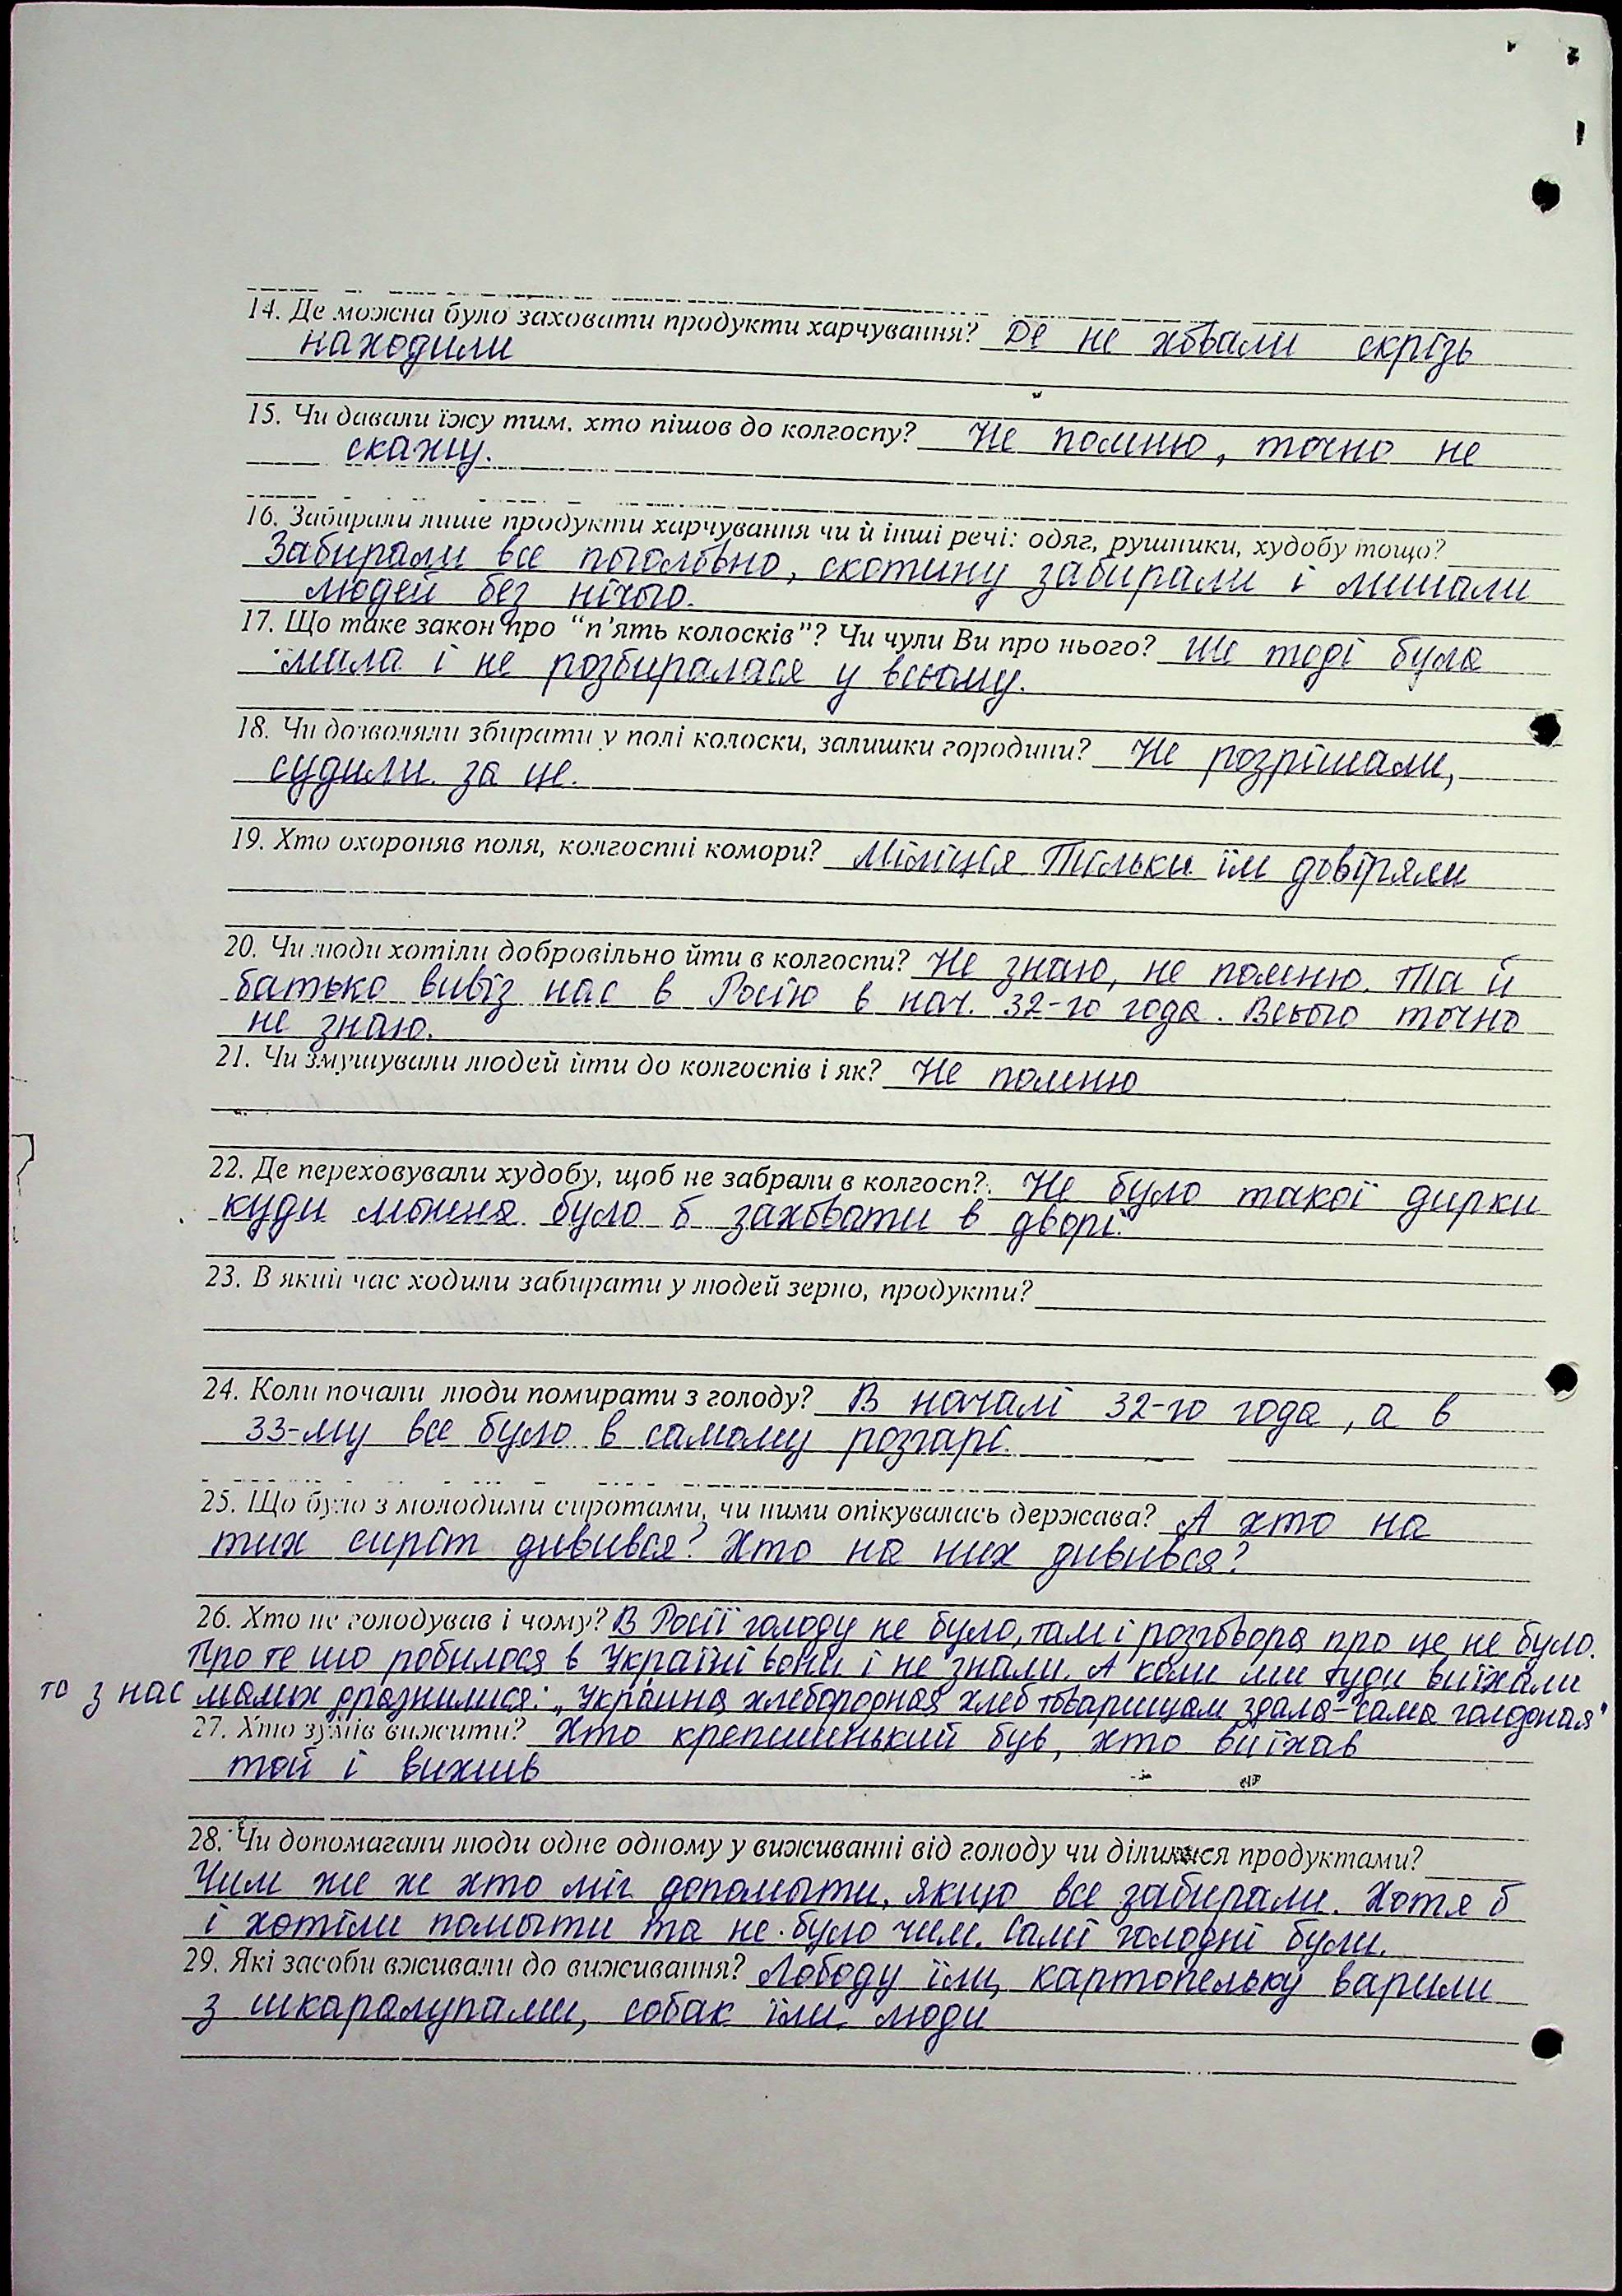 14. Де можна було заховати продукти харчування? Де не ховали скрізь
находили
15. Чи давали їжу тим, хто пішов до колгоспу? Не помню, точно не
скажу.
16. Забирали лише продукти харчування чи й інші речі: одяг, рушники, худобу тощо?
Забирали все поголовно, скотину забирали і лишали
людей без нічого.
17. Що таке закон про “п’ять колосків”? Чи чули Ви про нього? Ще тоді була
мала і не розбиралася у всьому.
18. Чи дозволяли збирати у полі колоски, залишки городини? Не розрішали,
судили за це.
19. Хто охороняв поля, колгоспні комори? Міліція Тільки їм довіряли
20. Чи люди хотіли добровільно йти в колгоспи? Не знаю, не помню. Та й
батько вивіз нас в Росію в нач. 32-го года. Всього точно
не знаю.
21. Чи змушували людей йти до колгоспів і як? Не помню
22. Де переховували худобу, щоб не забрали в колгосп? Не було такої дирки
куди можна було б заховати в дворі.
23. В який час ходили забирати у людей зерно, продукти?
24. Коли почали люди помирати з голоду? В началі 32-го года, а в
33-му все було в самому розгарі.
25. Що було з молодими сиротами, чи ними опікувалась держава? А хто на
тих сиріт дивився? Хто на них дивився?
26. Хто не голодував і чому? В Росії голоду не було, там і розговора про це не було.
Про те шо робилося в Україні вони і не знали. А коли ми туди виїхали
то з нас малых дразнилися: „Украина хлебородная хлеб товарищам здала – сама голодная"
27. Хто зумів вижити? Хто крепшенький був, хто виїхав
той і вижив
28. Чи допомагали люди одне одному у виживанні від голоду чи ділилися продуктами?
Чим же ж хто міг допомогти, якщо все забирали. Хотя б
і хотіли помогти та не було чим. Самі голодні були.
29. Які засоби вживали до виживання? Лободу їли, картопельку варили
з шкаралупами, собак їли люди